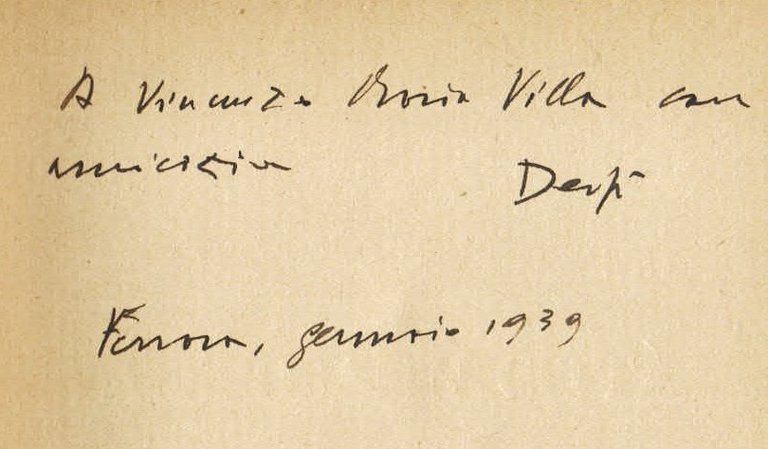 A Vincenzo Maria Villa con
amicizia Dessí
Ferrara, gennaio 1939